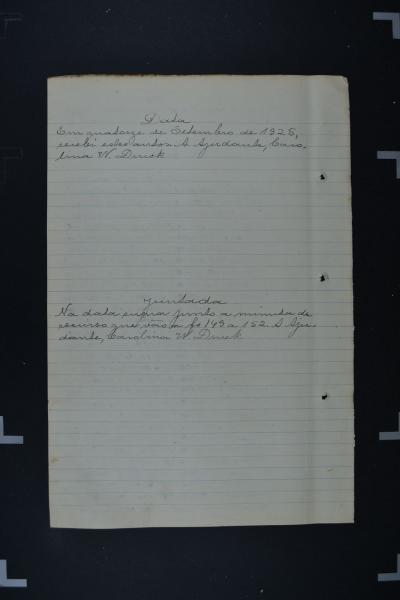 Data
Em quatorze de Setembro de 1928,
recebi estes autos. A Ajudante, Caro-
lina W. Druck
Juntada
Na data supra junto a minuta de
recurso que vão a fs 149 a 152. A Aju-
dante, Carolina W. Druck